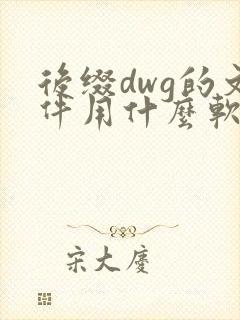 後缀dwg的文
件用什麼軟
宋大慶